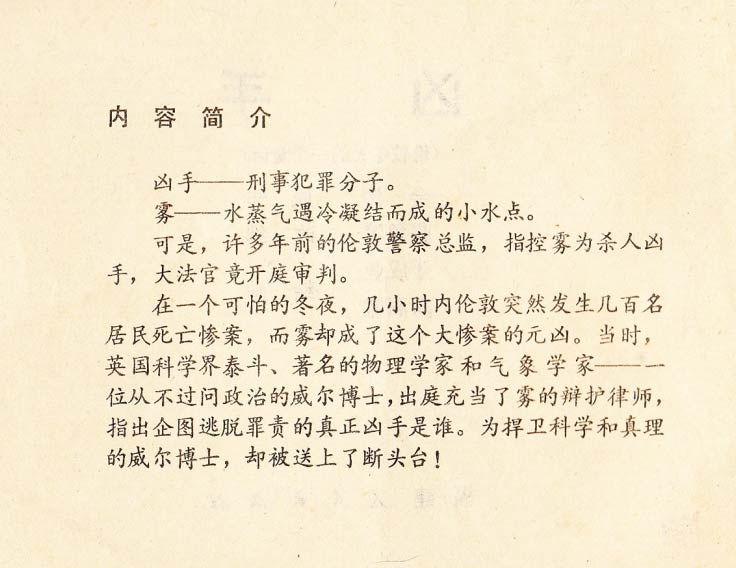 内容简介
凶手——刑事犯罪分子。
雾——水蒸气遇冷凝结而成的小水点。
可是，许多年前的伦敦警察总监，指控雾为杀人凶
手，大法官竟开庭审判。
在一个可怕的冬夜，几小时内伦敦突然发生几百名
居民死亡惨案，而雾却成了这个大惨案的元凶。当时，
英国科学界泰斗、著名的物理学家和气象学家——一
位从不过问政治的威尔博士，出庭充当了雾的辩护律师，
指出企图逃脱罪责的真正凶手是谁。为捍卫科学和真理
的威尔博士，却被送上了断头台！